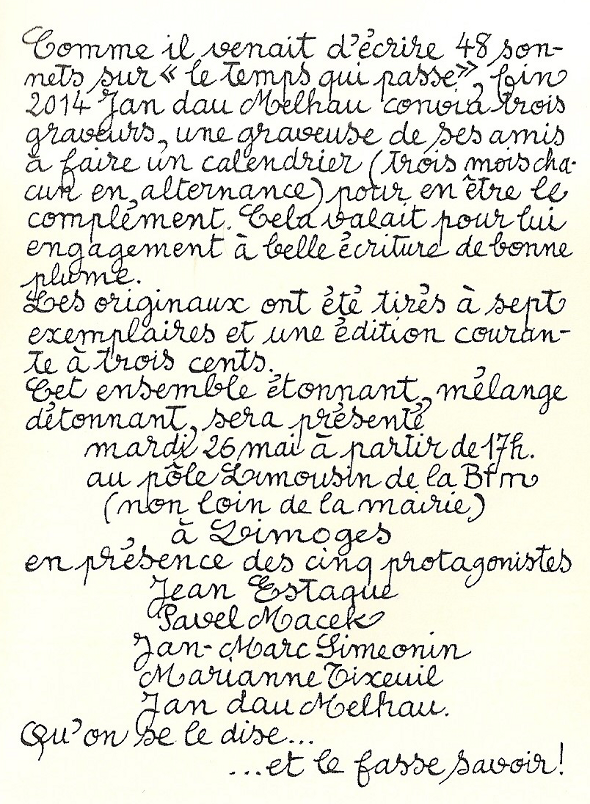 Comme il venait d'écrire 48 son-
nets sur « le temps qui passe », fin
2014 Jan dau Melhau convia trois
graveurs, une graveuse de ses amis
à faire un calendrier (trois mois cha-
cun en alternance) pour en être le
complément. Cela valait pour lui
engagement à belle écriture de bonne
plume.
Les originaux ont été tirés à sept
exemplaires et une édition couran-
te à trois cents.
Cet ensemble étonnant, mélange
détonnant, sera présenté
mardi 26 mai à partir de 17h.
au pôle Limousin de la Bfm
(non loin de la mairie)
à Limoges
en présence des cinq protagonistes
Jean Estaque
Pavel Macek
Jan-Marc Simeonin
Marianne Tixeuil
Jan dau Melhau.
Qu'on se le dise...
...et le fasse savoir!